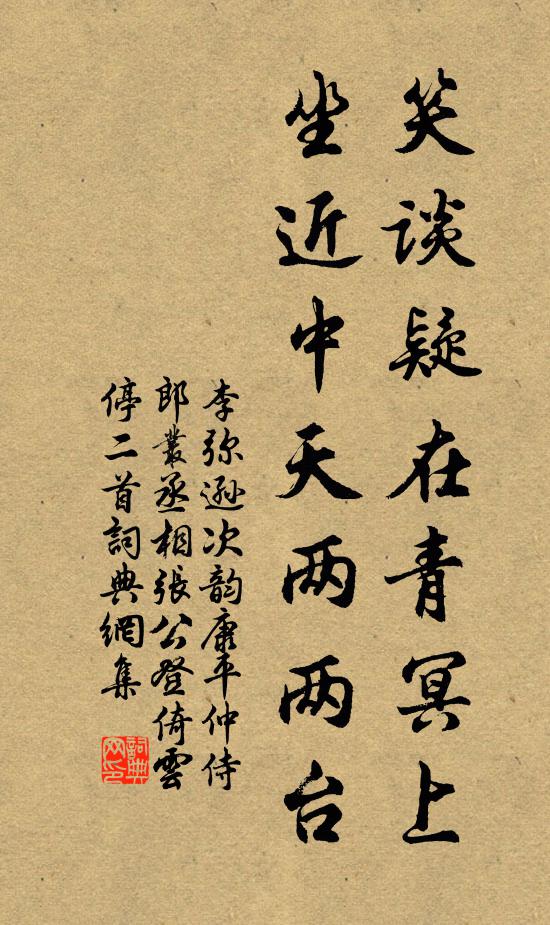 笑谈疑在青冥上
坐近中天两两台
李弥逊次韵廉平仲侍
郎叢丞相張公登倚雲
停二首詞典網集
詞典网印